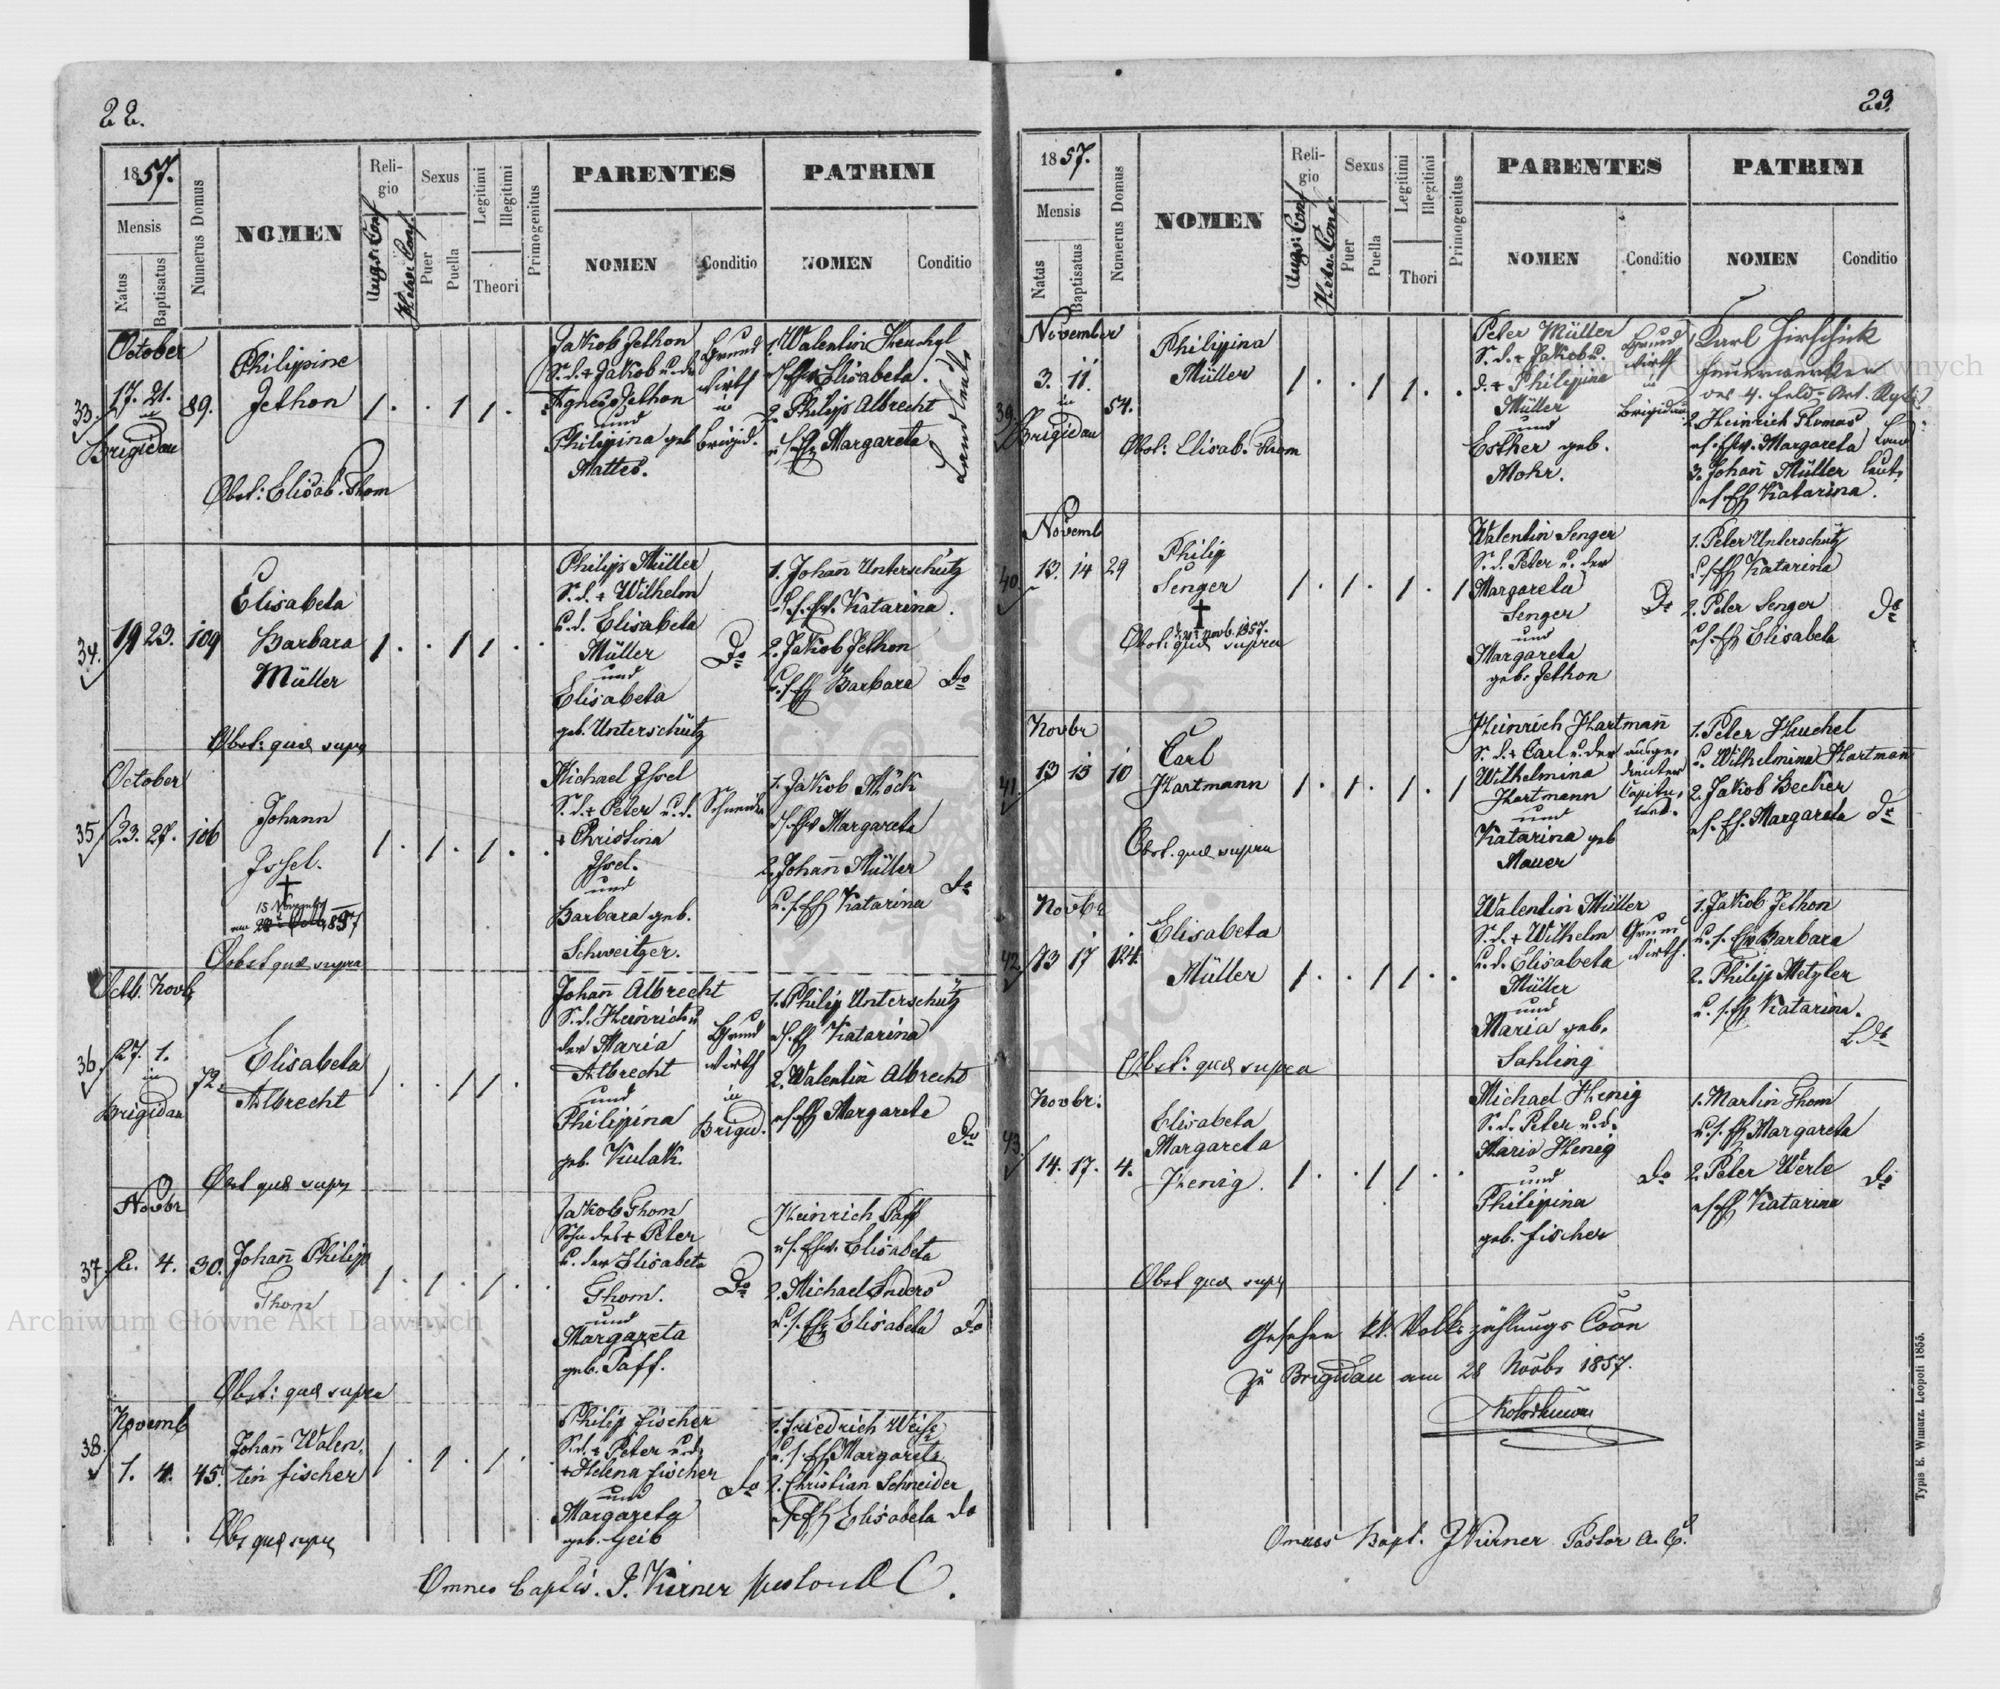 22.
1857.
Mensis
Natus
Baptisatus
Numerus Domus
NOMEN
Religio
Augs: Conf
Helv: Conf.
Sexus
Puer
Puella
Legitimi
Illegitimi
Thori
Primogenitus
PARENTES
NOMEN
Conditio
PATRINI
NOMEN
Conditio
33.
October
17. 21.
in
Brigidau
89.
Philippine
Jethon
1 . . 1 1 .
Obst: Elisab. Thom
Jakob Jethon
S. d. + Jakob u. der
Agnes Jethon
und
Philippina geb
Mattes.
Grund
wirth
in
Brigid.
1. Walentin
Elisabeta.
2. Philipp Albrecht
Margareta
Landleute
34.
19 23. 109
Elisabeta
Barbara
Müller
1 . . 1 1 . .
Obst: quae supra
Philipp Müller
S. d. + Wilhelm
u. d. Elisabeta
Müller
und
Elisabeta
geb. Unterschütz
Do
1. Johañ Unterschütz
Katarina.
2. Jakob Jethon
Barbara Do
35
October
23. 27. 106
Johann
Issel.
+
15 November
Obst quae supra
1 . 1 . 1 . .
Michael Issel
S. d. + Peter u. d.
+ Christina
Issel.
und
Barbara geb.
Schweitzer.
Schneider
1. Jakob Möck
Margareta
2. Johañ Müller
Katarina Do
36.
Octb. Novb
27. 1.
in
Brigidau
72.
Elisabeta
Albrecht
1 . . 1 1 .
Obst quae supra
Johañ Albrecht
S. d. Heinrich u
der Maria
Albrecht
und
Philippina
geb. Kulak.
Grund
wirth
in
Brigid.
1. Philip Unterschütz
Katarina
2. Walentin Albrecht
Margareta
Do
37.
Novbr
2. 4. 30.
Johañ Philipp
Thom
1 . 1 . 1 . .
Obst: quae supra
Jakob Thom
Sohn des + Peter
u. der Elisabeta
Thom.
und
Margareta
geb. Paff.
Do
Heinrich Paff
Elisabeta
2. Michael Enders
Elisabeta Do
38.
Novemb
1. 4. 45.
Johañ Walen,
tin Fischer
1 . 1 . 1 .
Obs quae supra
Philip Fischer
S. d. + Peter u. d.
+ Helena Fischer
und
Margareta
geb. Geib
Do
1. Friedrich Weiss
Margareta
2. Christian Schneider
Elisabeta Do
Omnes baptis. J. Kirner Pastor A C.
23.
1857.
Mensis
Natus
Baptisatus
Numerus Domus
NOMEN
Religio
Augs: Conf
Helv. Conf.
Sexus
Puer
Puella
Legitimi
Illegitimi
Thori
Primogenitus
PARENTES
NOMEN
Conditio
PATRINI
NOMEN
Conditio
39.
November
3. 11.
in
Brigidau
54.
Philippina
Müller
1 . . 1 1 . .
Obst: Elisab. Thom
Peter Müller
S. d. + Jakob u.
d. + Philippina
Müller
und
Esther geb.
Mohr.
Grund
wirth
in
Brigidau
Karl Hirschik
Feuerwerker
des 4. Feld-Art. Rgts
2. Heinrich Thomas
Margareta
3. Johañ Müller
Katarina.
Land
leute
40.
Novemb
13. 14 29
Philip
Senger
+
novb. 1857.
Obst: quae supra
1 . 1 . 1 . 1
Walentin Senger
S. d. Peter u. der
Margareta
Senger
und
Margareta
geb. Jethon
Do
1. Peter Unterschütz
Katarina
2. Peter Senger
Elisabeta
Do
41.
Novbr
13 15 10
Carl
Hartmann
1 . 1 . 1 . 1
Obst. quae supra
Heinrich Hartmañ
S. d. + Carl u. der
Wilhelmina
Hartmann
und
Katarina geb
Mauer
ausge,
dienter
Capitu,
lant.
1. Peter Heuchel
u. Wilhelmina Hartmañ
2. Jakob Becker
Margareta Do
42.
Novbr
13 17 124.
Elisabeta
Müller
1 . . 1 1 . .
Obst: quae supra
Walentin Müller
S. d. + Wilhelm
u. d. Elisabeta
Müller
und
Maria geb.
Sahling
Grund
wirth.
1. Jakob Jethon
Barbara
2. Philip Metzler
Katarina.
Do
43.
Novbr.
14. 17. 4.
Elisabeta
Margareta
Henig.
1 . . 1 1 . .
Obst quae supra
Michael Henig
S. d. Peter u. d.
Maria Henig
und
Philipina
geb. Fischer
Do
1. Martin Thom
Margareta
2. Peter Werle
Katarina
Do
Gesehen kk. Volkszählungs Coon
zu Brigidau am 28 Novbr 1857.
Omnes bapt. J Kirner Pastor A. C.
Typis E. Winiarz. Leopoli 1855.
Archiwum Główne Akt Dawnych
Archiwum Główne Akt Dawnych